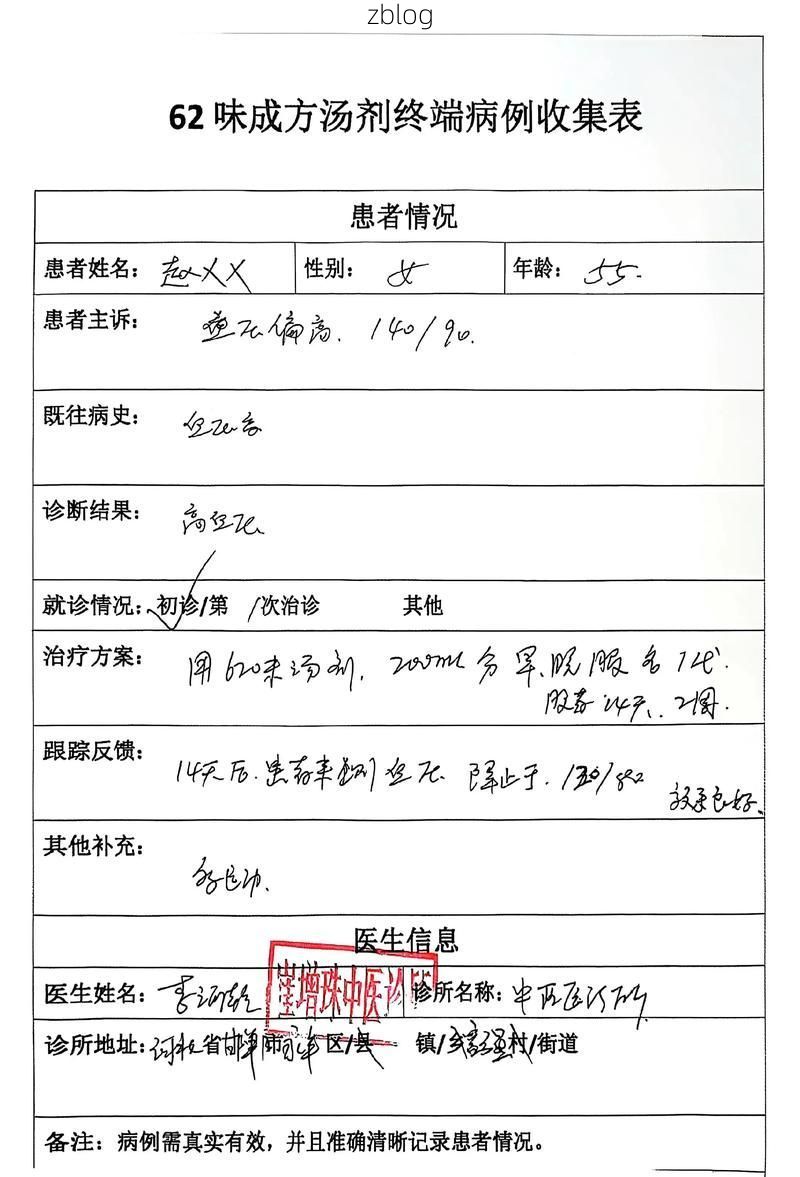 zblog
62味成方汤剂终端病例收集表
患者情况
患者姓名：赵XX 性别：女 年龄：55.
患者主诉：血压偏高. 140/90.
既往病史：血压高
诊断结果：高血压
就诊情况：初诊/第 /次治诊 其他
治疗方案：用620味汤剂, 200ml分早、晚服各1代.
服药14天、2周.
跟踪反馈：14天后.患者来测血压 降止于.
效果良好.
其他补充：多运动.
医生信息
崔增珠中医诊所
医生姓名：李 诊所名称：中医诊所
诊所地址：河北省邯郸市 区/县 镇/乡 村/街道
备注：病例需真实有效，并且准确清晰记录患者情况。